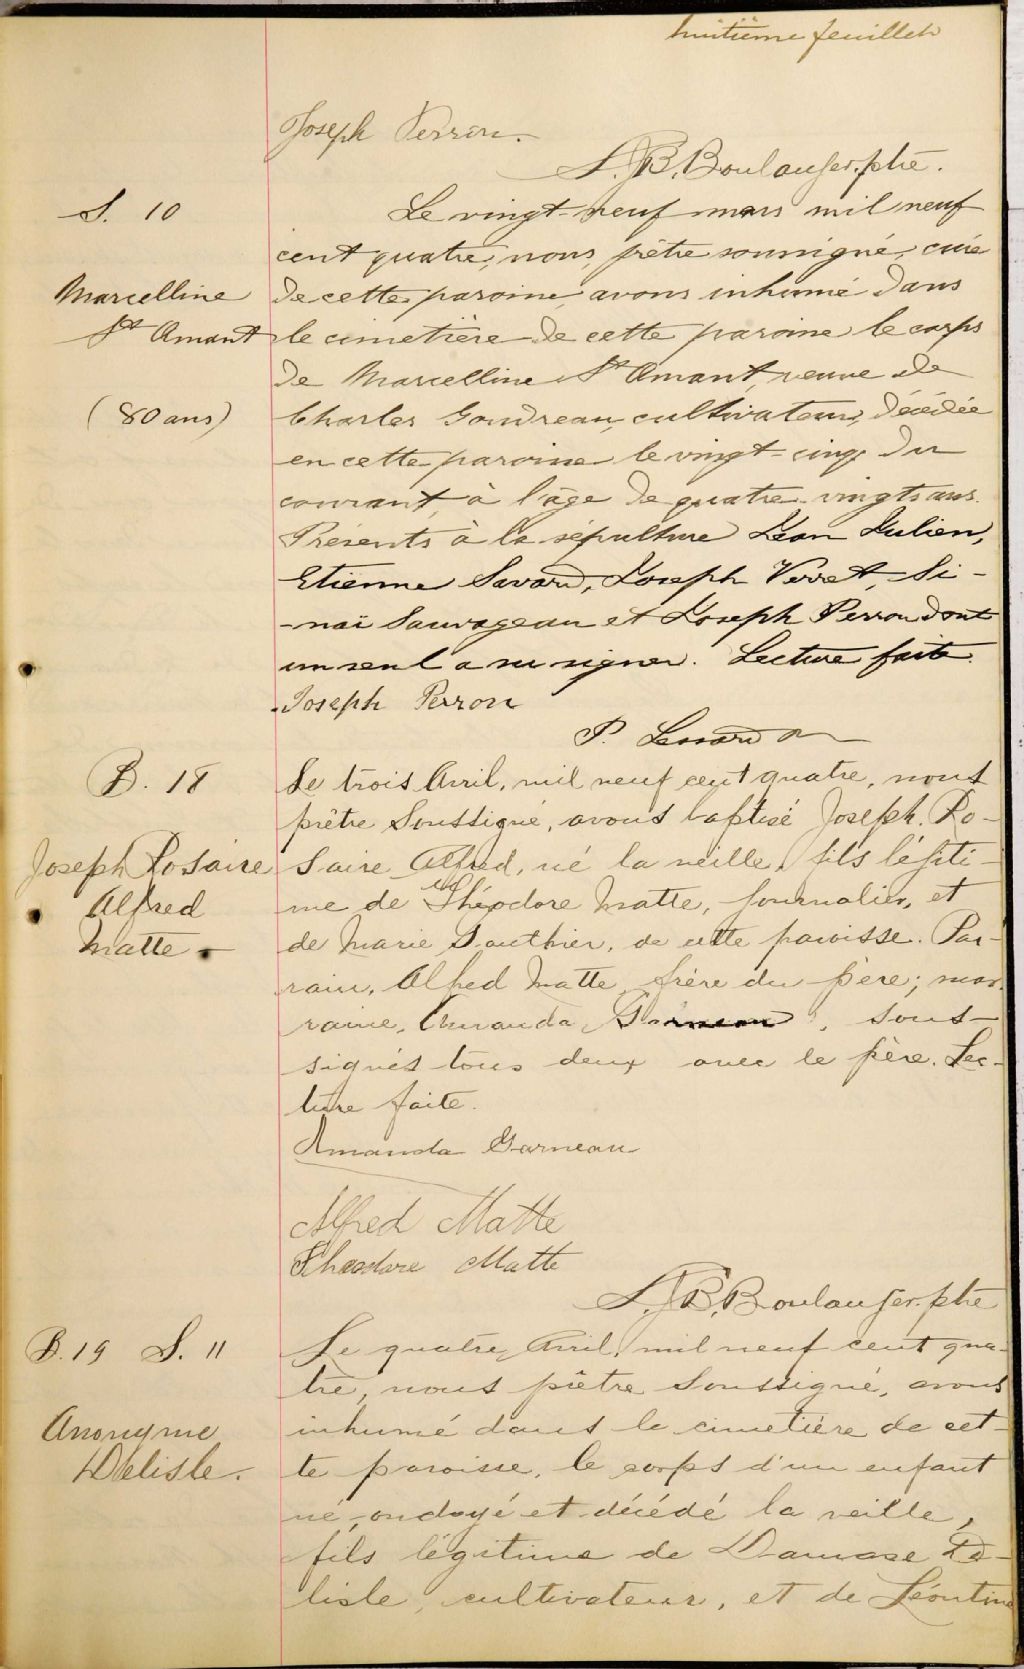 huitième feuillet
Joseph Perron.
L. B. Boulanger. ptre.
S. 10
Le vingt-neuf mars mil neuf
cent quatre, nous, prêtre soussigné, curé
Marcelline
de cette paroisse, avons inhumé dans
St Amant
le cimetière de cette paroisse le corps
de Marcelline St Amant, veuve de
(80 ans)
Charles Goudreau, cultivateur, décédée
en cette paroisse le vingt-cinq du
courant, à l'âge de quatre-vingts ans.
Présents à la sépulture Léon Julien,
Etienne Savard, Joseph Verret, Si-
-naï Sauvageau et Joseph Perron dont
un seul a su signer. Lecture faite.
Joseph Perron
P. Lessard
B. 18
Le trois Avril, mil neuf cent quatre, nous
prêtre Soussigné, avons baptisé Joseph. Ro-
Joseph Rosaire
saire Alfred, né la veille, fils légiti-
Alfred
me de Théodore Matte, journalier, et
Matte.
de Marie Gauthier, de cette paroisse. Par-
rain, Alfred Matte, frère du père; mar-
raine, Amanda Garneau, sous-
signés tous deux avec le père. Lec-
ture faite.
Amanda Garneau
Alfred Matte
Theodore Matte
L. B. Boulanger. ptre
B. 19 S. 11
Le quatre, Avril, mil neuf cent qua-
tre, nous prêtre Soussigné, avons
Anonyme
inhumé dans le cimetière de cet-
Delisle.
te paroisse, le corps d'un enfant
né, ondoyé et décédé la veille,
fils légitime de Damase De-
lisle, cultivateur, et de Léontine